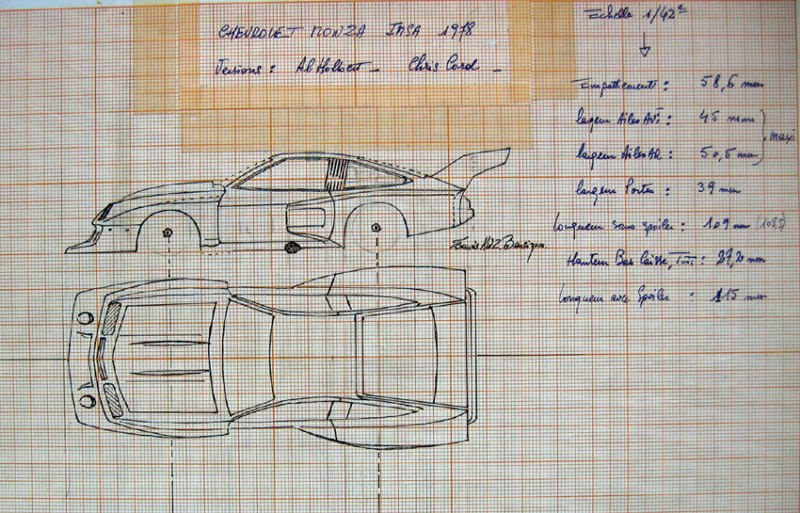 CHEVROLET MONZA IMSA 1978
Versions : Al Holbert - Chris Cord -
Echelle 1/42e
Empattement : 58,6 mm
largeur Ailes AVt : 45 mm
maxi
largeur Ailes AR : 50,5 mm
largeur Portes : 39 mm
longueur sans spoiler : 109 mm (108,5)
Hauteur Bas Caisse, Toit : 27,2 mm
longueur avec Spoiler : 115 mm